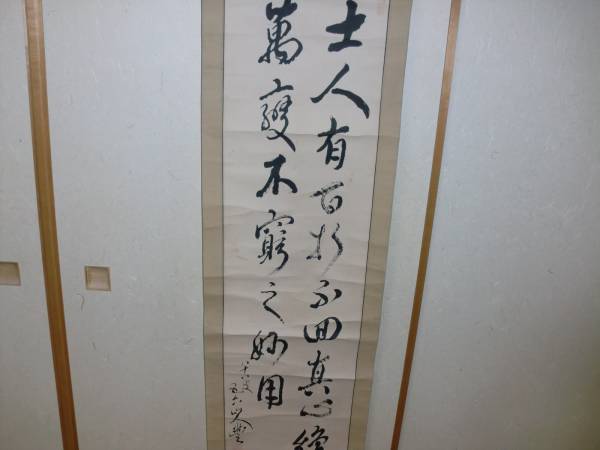 士人有百折不回真心纔
萬變不窮之妙用